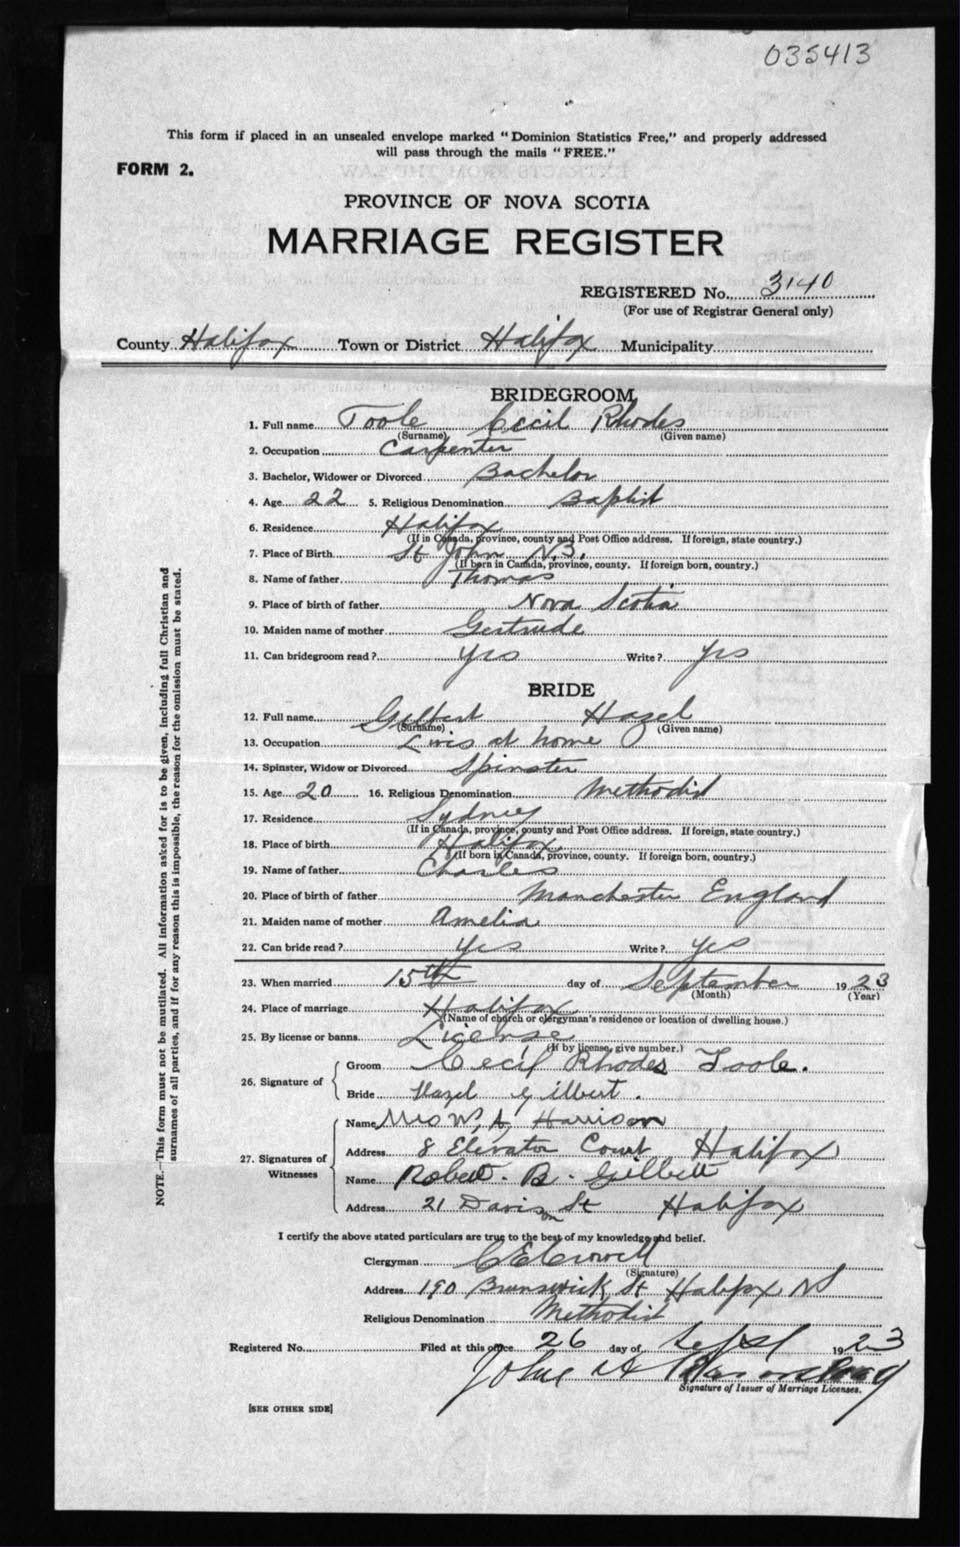 035413
This form if placed in an unsealed envelope marked "Dominion Statistics Free," and properly addressed
will pass through the mails "FREE."
FORM 2.
PROVINCE OF NOVA SCOTIA
MARRIAGE REGISTER
REGISTERED No. 3140
(For use of Registrar General only)
County Halifax Town or District Halifax Municipality
BRIDEGROOM
1. Full name Toole Cecil Rhodes
(Surname) (Given name)
2. Occupation Carpenter
3. Bachelor, Widower or Divorced Bachelor
4. Age 22 5. Religious Denomination Baptist
6. Residence Halifax
(If in Canada, province, county and Post Office address. If foreign, state country.)
7. Place of Birth St John N.B.
(If born in Canada, province, county. If foreign born, country.)
8. Name of father Thomas
9. Place of birth of father Nova Scotia
10. Maiden name of mother Gertrude
11. Can bridegroom read? Yes Write? Yes
BRIDE
12. Full name Gilbert Hazel
(Surname) (Given name)
13. Occupation Livis at home
14. Spinster, Widow or Divorced Spinster
15. Age 20 16. Religious Denomination Methodist
17. Residence Sydney
(If in Canada, province, county and Post Office address. If foreign, state country.)
18. Place of birth Halifax
(If born in Canada, province, county. If foreign born, country.)
19. Name of father Charles
20. Place of birth of father Manchester England
21. Maiden name of mother Amelia
22. Can bride read? Yes Write? Yes
23. When married 15th day of September 1923
(Month) (Year)
24. Place of marriage Halifax
(Name of church or clergyman's residence or location of dwelling house.)
25. By license or banns License
(If by license, give number.)
26. Signature of
Groom Cecil Rhodes Toole.
Bride Hazel Gilbert.
27. Signatures of Witnesses
Name Mrs W. A. Harrison
Address 8 Elevator Court Halifax
Name Robert. B. Gilbert
Address 21 Davison St Halifax
I certify the above stated particulars are true to the best of my knowledge and belief.
Clergyman C E Crowell
(Signature)
Address 190 Brunswick St Halifax NS
Religious Denomination Methodist
Registered No. Filed at this office 26 day of Sept 1923
John A
Signature of Issuer of Marriage Licenses.
[SEE OTHER SIDE]
NOTE.—This form must not be mutilated. All information asked for is to be given, including full Christian and
surnames of all parties, and if for any reason this is impossible, the reason for the omission must be stated.